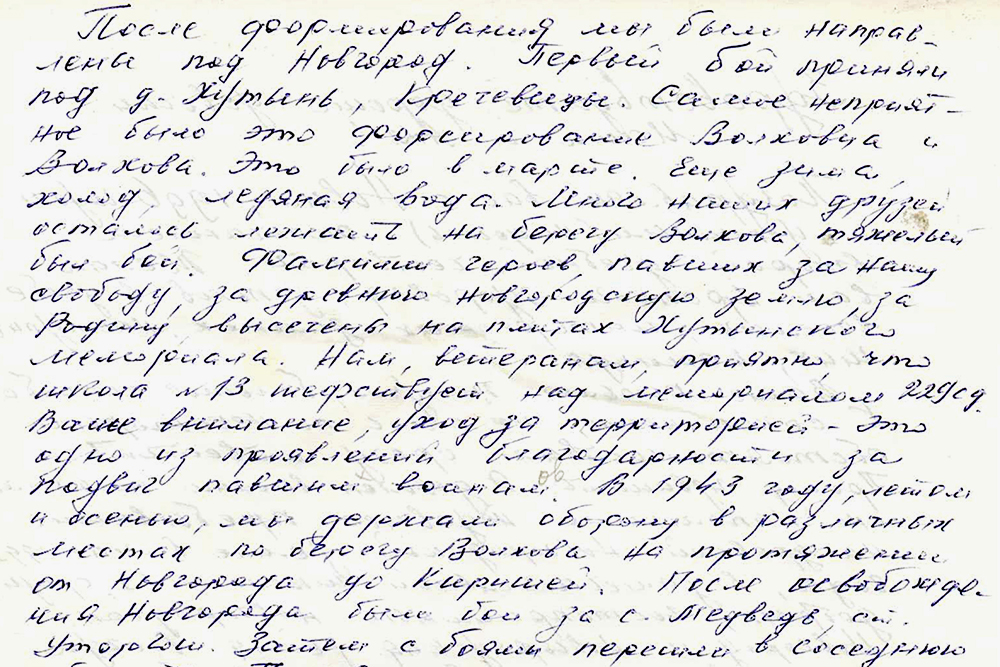 После формирования мы были направ-
лены под Новгород. Первый бой приняли
под д. Хутынь, Кречевицы. Самое неприят-
ное было это форсирование Волховца и
Волхова. Это было в марте. Еще зима,
холод, ледяная вода. Много наших друзей
осталось лежать на берегу Волхова, тяжелый
был бой. Фамилии героев, павших за нашу
свободу, за древнюю новгородскую землю, за
Родину, высечены на плитах Хутынского
мемориала. Нам, ветеранам, приятно, что
школа № 13 шефствует над мемориалом 229 сд.
Ваше внимание, уход за территорией - это
одно из проявлений благодарности за
подвиг павшим воинам. В 1943 году, летом
и осенью, мы держали оборону в различных
местах по берегу Волхова на протяжении
от Новгорода до Киришей. После освобожде-
ния Новгорода были бои за с. Медведь, ст.
Уторгош. Затем с боями перешли в соседнюю